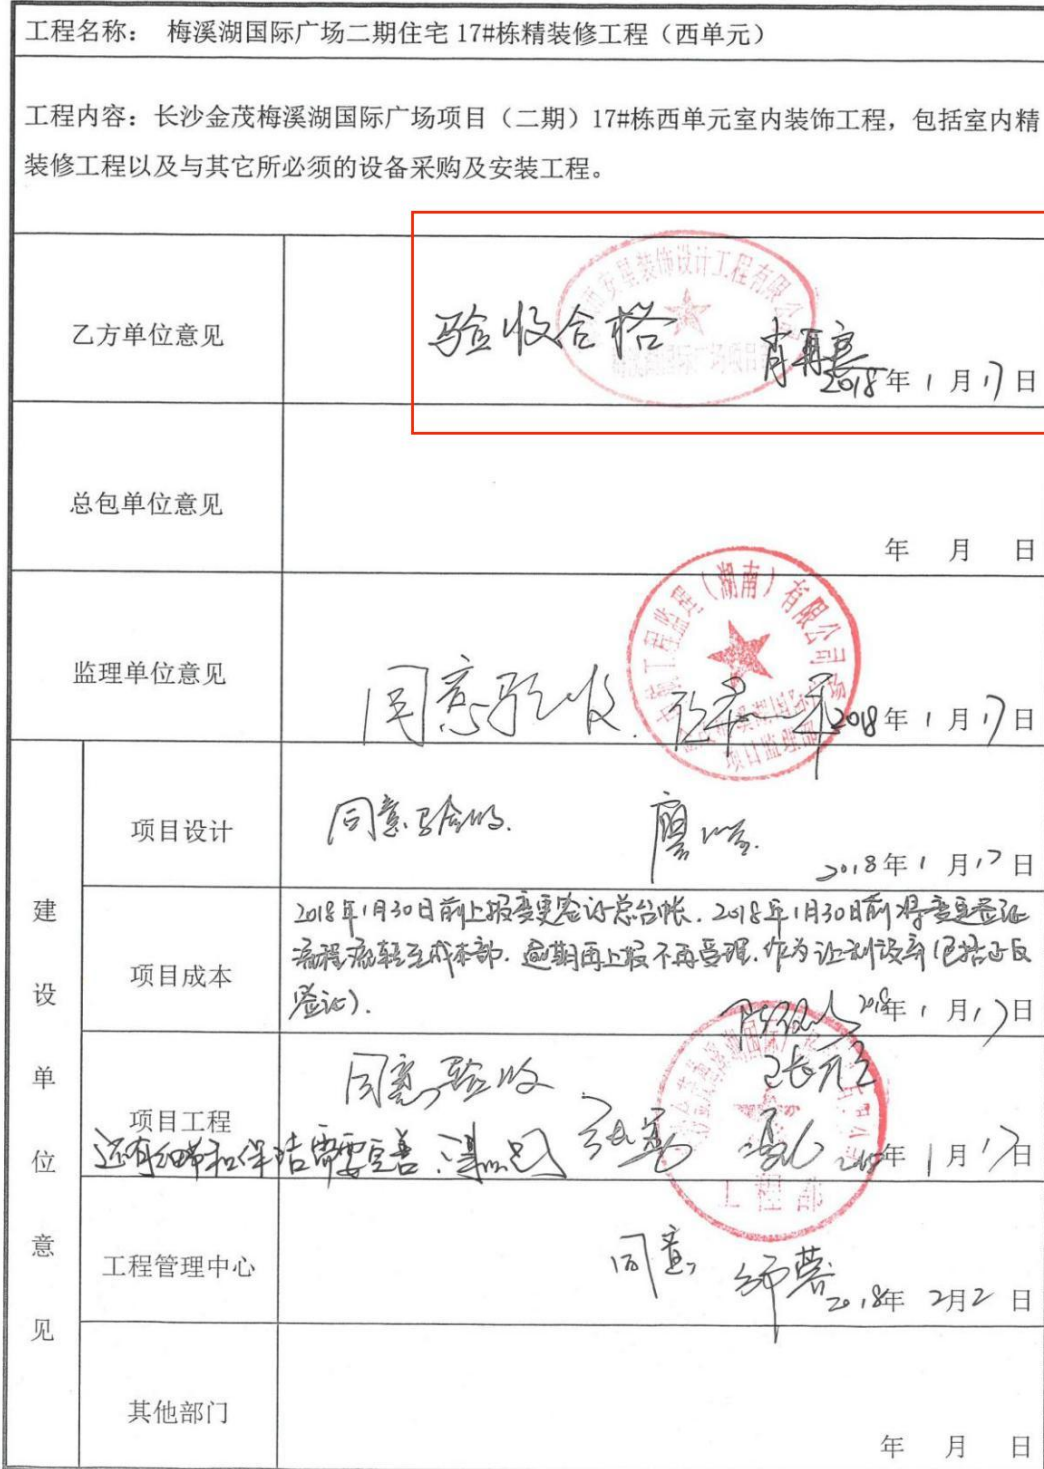 工程名称： 梅溪湖国际广场二期住宅 17#栋精装修工程（西单元）
工程内容：长沙金茂梅溪湖国际广场项目（二期）17#栋西单元室内装饰工程，包括室内精
装修工程以及与其它所必须的设备采购及安装工程。
乙方单位意见
验收合格
安星装饰设计工程有限公
2018年1月17日
总包单位意见
年 月 日
监理单位意见
同意验收
工程监理（湖南）有限公司
项目监理部
2018年1月17日
建设单位意见
项目设计
同意验收.
2018年1月17日
项目成本
2018年1月30日前上报变更签证总台帐. 2018年1月30日前将变更签证
流程流转至成本部. 逾期再上报不再受理. 作为让利
签证).
2018年1月17日
项目工程
同意验收
还有细节和保洁需要完善.
工程部
年1月17日
工程管理中心
同意
2018年2月2日
其他部门
年 月 日